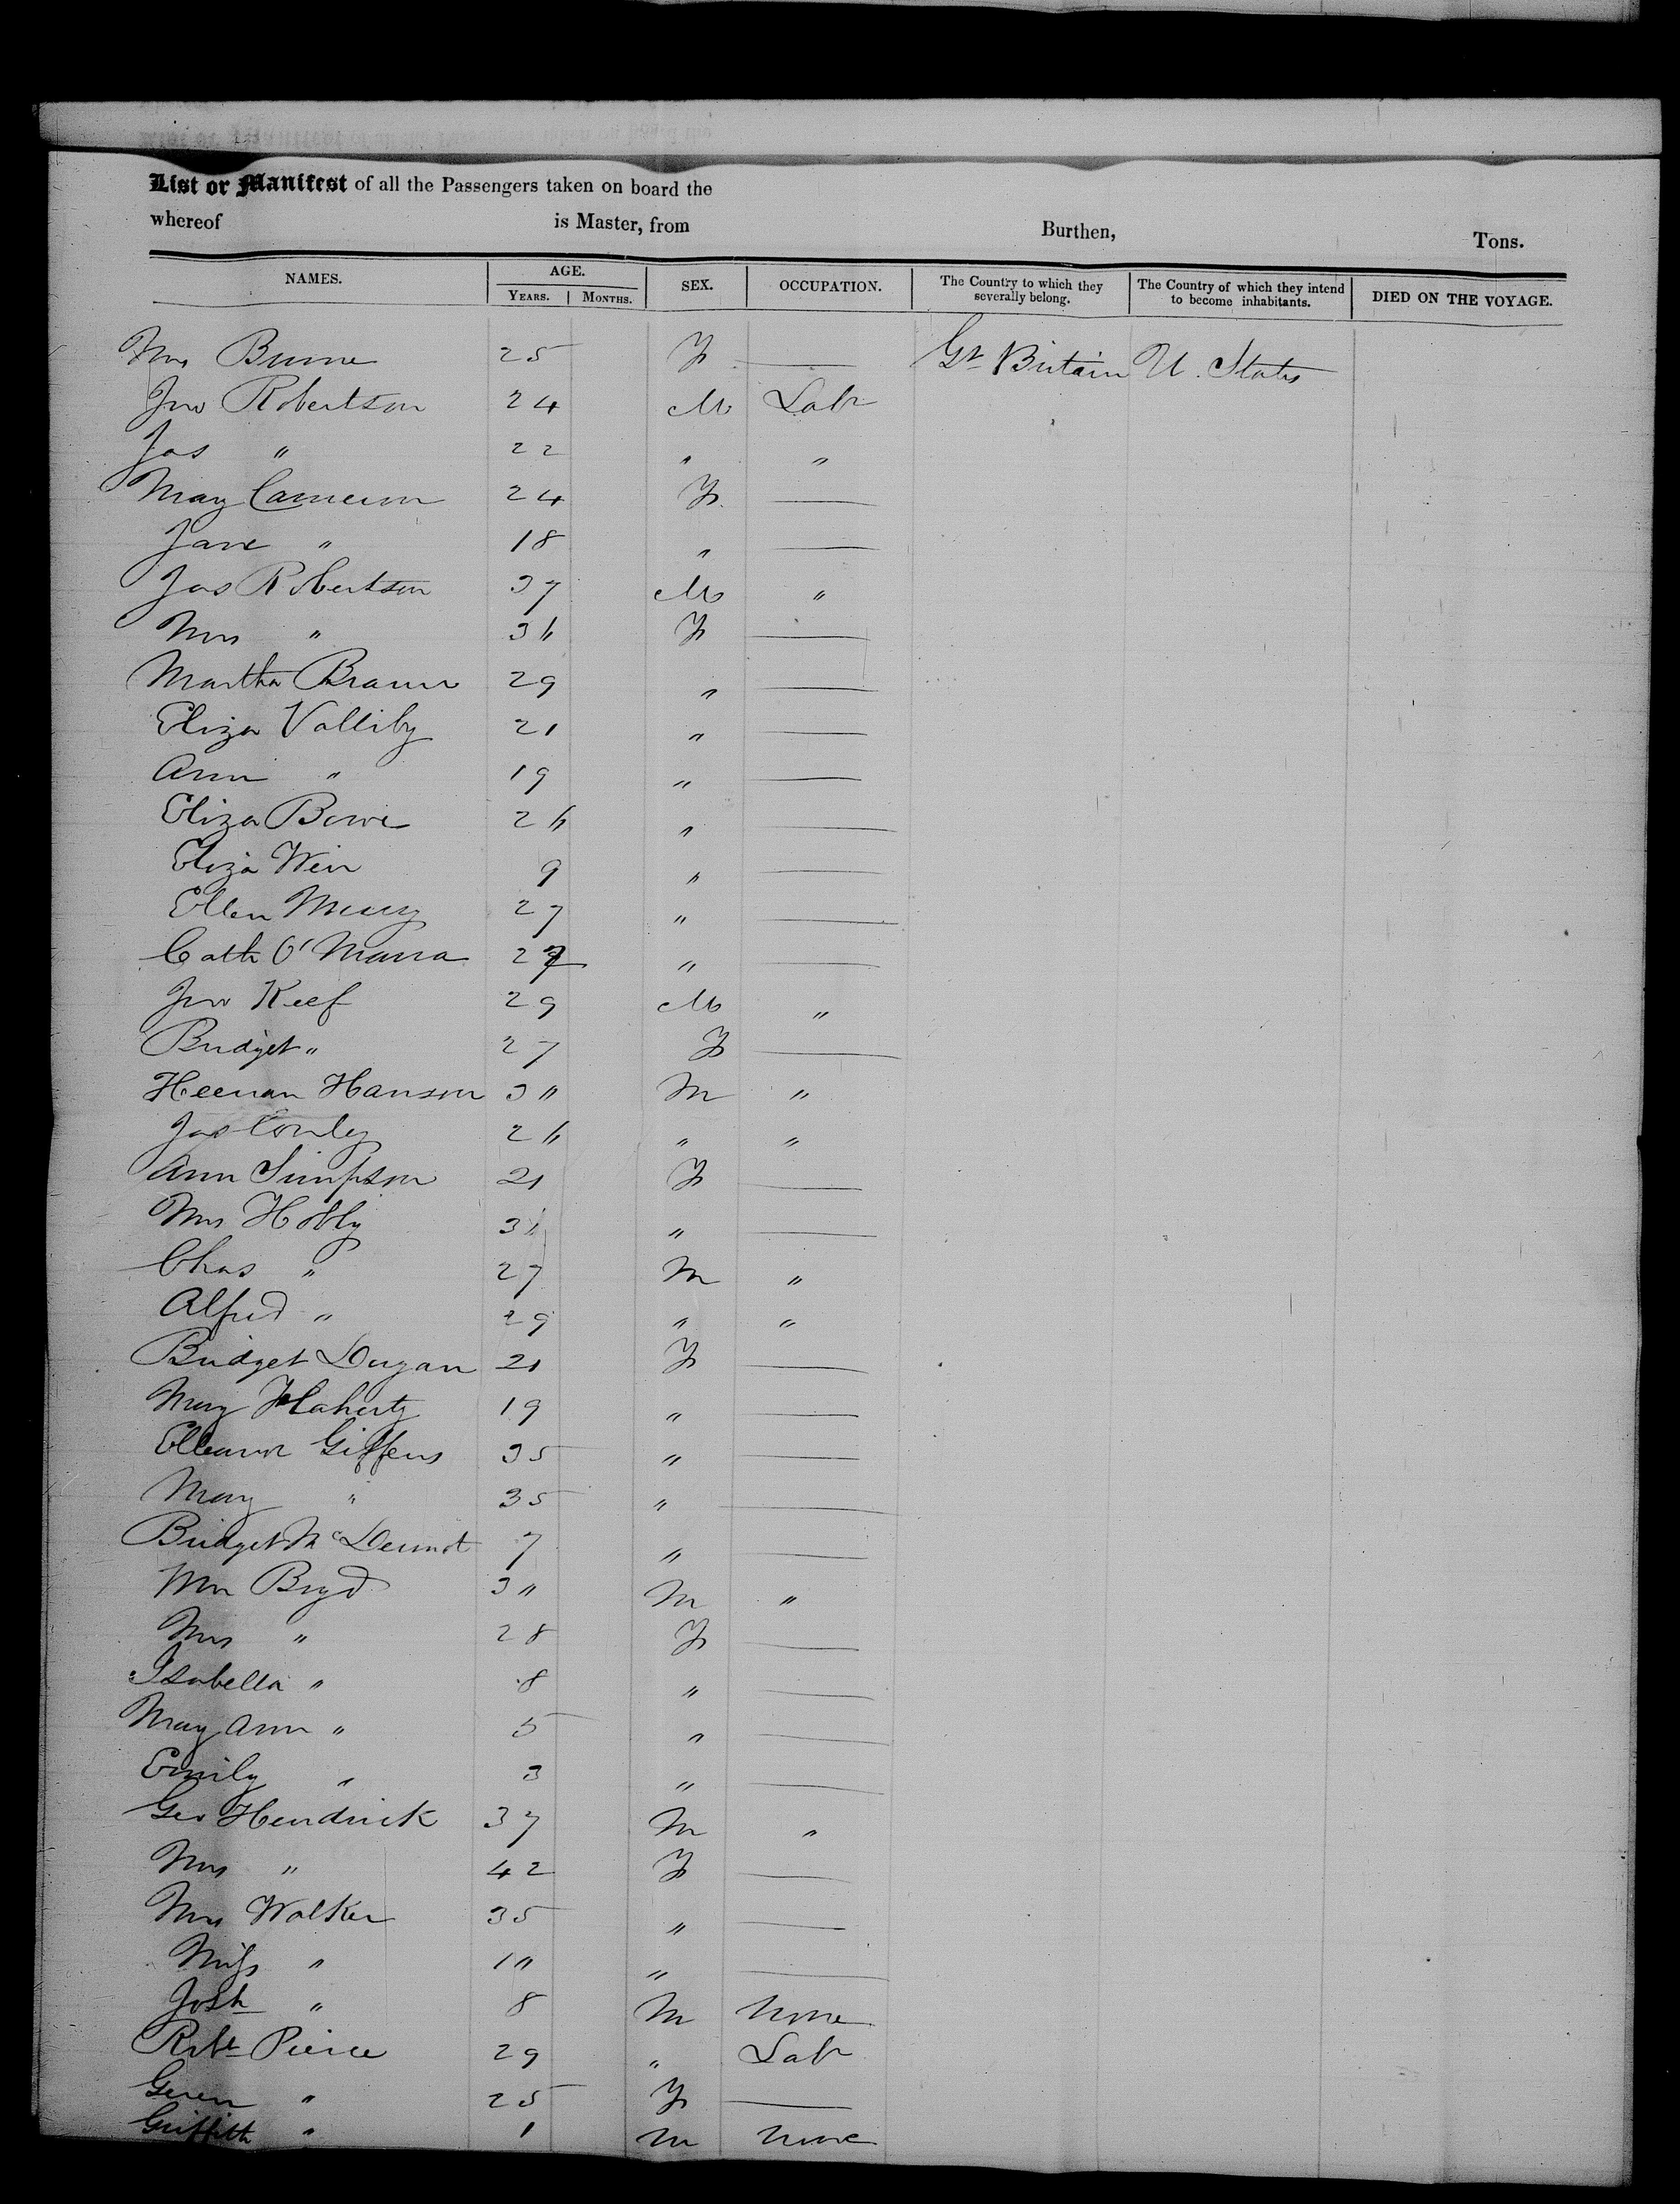 List or Manifest of all the Passengers taken on board the
whereof is Master, from Burthen, Tons.
NAMES. AGE. YEARS. MONTHS. SEX. OCCUPATION. The Country to which they severally belong. The Country of which they intend to become inhabitants. DIED ON THE VOYAGE.
Mrs 25 F — Gt Britain U. States
Jno Robertson 24 M Labr
Jas " 22 " "
Mary Cameron 24 F —
Jane " 18 " —
Jas Robertson 37 M "
Mrs " 3" F —
Martha Brown 29 " —
Eliza Valliby 21 " —
Ann " 19 " —
Eliza Bowe 2" " —
Eliza Weir 9 " —
Ellen 27 " —
Cath O'Marra 27 " —
Jno Keef 29 M "
Bridget " 27 F —
Heenan Hanson 3" M "
Jas Conley 2" " "
Ann Simpson 21 F —
Mrs Hobly 3" " —
Chas " 27 M "
Alfred " 29 " "
Bridget Dugan 21 F —
Mary Flaherty 19 " —
Elleanor Giffens 35 " —
Mary " 35 " —
Bridget McDermot 7 " —
Wm Boyd 3" M "
Mrs " 28 F —
Isabella " 8 " —
Mary Ann " 5 " —
Emily " 3 " —
Geo Hendrick 37 M "
Mrs " 42 F —
Mrs Walker 35 " —
Miss " 1" " —
Josh " 8 M None
Robt Pierce 29 " Labr
" 25 F —
Griffith " 1 M None